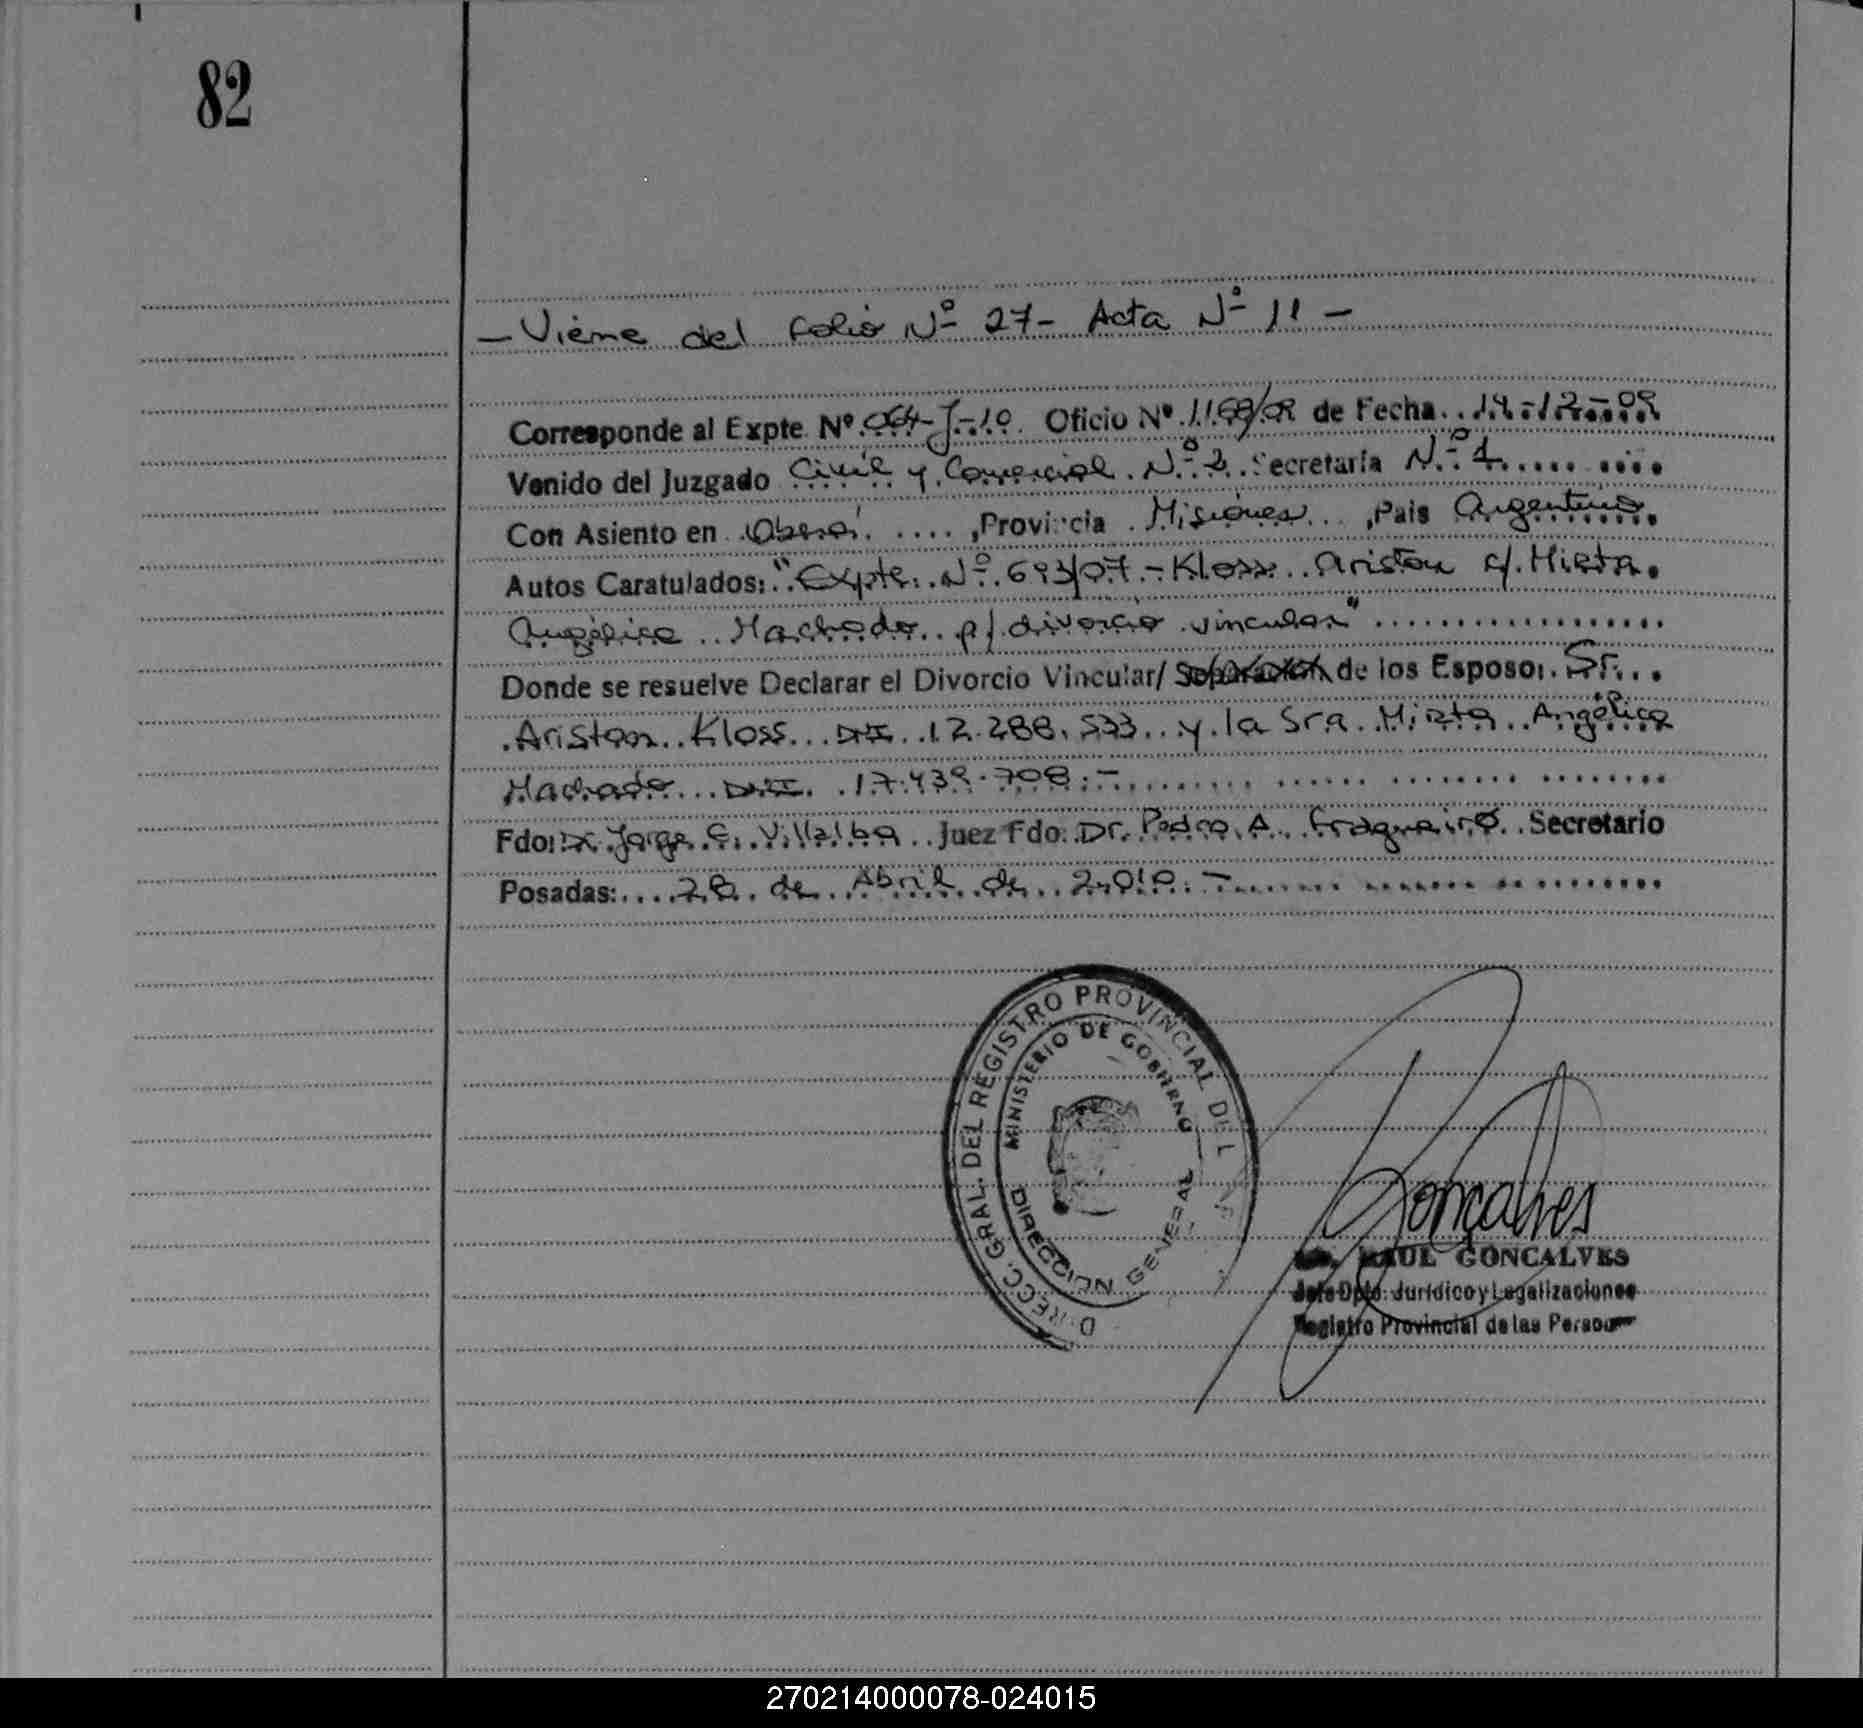 82
- Viene del folio Nº 27 - Acta Nº 11 -
Corresponde al Expte Nº 064-J-10 Oficio Nº 1168/09 de Fecha 14-12-09
Venido del Juzgado Civil y Comercial Nº 2 Secretaría Nº 1
Con Asiento en Oberá, Provincia Misiones, Pais Argentina
Autos Caratulados: "Expte. Nº 693/07 - Kloss Ariston c/ Mirta
Angélica Machado p/ divorcio vincular"
Donde se resuelve Declarar el Divorcio Vincular/ Separación de los Esposo: Sr.
Ariston Kloss DNI 12.288.533 y la Sra Mirta Angélica
Machado DNI 17.439.708.-
Fdo: Dr. Jorge E. Villalba Juez Fdo: Dr. Pedro A. Fragueiro Secretario
Posadas: 28 de Abril de 2010.-
DIRECC. GRAL. DEL REGISTRO PROVINCIAL DE L
MINISTERIO DE GOBIERNO
DIRECCION GENERAL
Goncalves
RAUL GONCALVES
Jefe Dpto. Jurídico y Legalizaciones
Registro Provincial de las Person
270214000078-024015